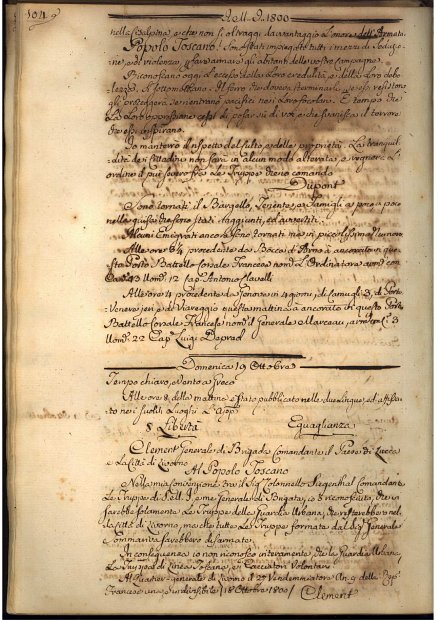 104
Dell' A. 1800
nella Cisalpina, e che non si oltraggi da vantaggio l'onore dell'Armata.
Popolo Toscano! Son stati impiegati tutti i mezzi di seduzione,
e di violenza, per armare gli abitanti delle vostre Campagne.
Riconoscano oggi l'eccesso della Loro credulità, e della Loro debolezza.
Si sottomettano. Il ferro che doveva sterminarli, se essi resistono
gli proteggerà se rientrano pacifici nei Loro focolari. È tempo che
i Loro oppressori cessino di posar su di voi, e che finisca il terrore
che essi inspirano.
Io manterrò il rispetto del Culto, e delle proprietà. La tranquillità
dei Cittadini non sarà in alcun modo alterata, e regnerà l'
ordine il più severo fra le Truppe che io comando
Dupont
Sono tornati il Bargello, Tenente, e Famigli a poco a poco
nelle guise che sono stati raggiunti, ed avvertiti.
Alcuni Emigrati ancora sono tornati ma in piccolissimo numero
Alle ore 6¼ procedente da Bocca d'Arno è ancorato in questo
Porto Battello Corsale Francese nom. L'Ordinatore arm. con
Can. 3 Uom. 12 Cap. Antonio
Alle ore 4 procedente da Genova in 4 giorni, di Camugli 3, di Porto
Venere jeri, e di Viareggio questa mattina è ancorato in questo Porto
Battello Corsale Francese nom. il Generale Marceau, arm. con C. 3
Uom. 22 Cap. Luigi
Domenica 19 Ottobre
Tempo chiaro, e Vento a Greco
Alle ore 8 della mattina è stato pubblicato nelle due Lingue, ed affissato
nei soliti Luoghi L'app.
Libertà Eguaglianza
Clement Generale di Brigada Comandante il Paese di Lucca
e La Città di Livorno
Al Popolo Toscano
Nella mia Convenzione tra il Sig. Colonnello Siegenthal Comandante
Le Truppe di S. M. I., e me Generale di Brigata, si è riconosciuto, che vi
sarebbe solamente Le Truppe della Guardia Urbana, che resterebbero nel
la Città di Livorno, ma che tutte Le Truppe formate dal Sig. Generale
Sommariva sarebbero disarmate.
In conseguenza io non riconosco interamente, che la Guardia Urbana,
Le Truppe di Linea Toscane, e i Cacciatori Volontari.
Al Quartier-generale di Livorno il 27 Vendemmiatore An. 9 della Rep.
Francese una, e indivisibile (18 Ottobre 1800)
Clement